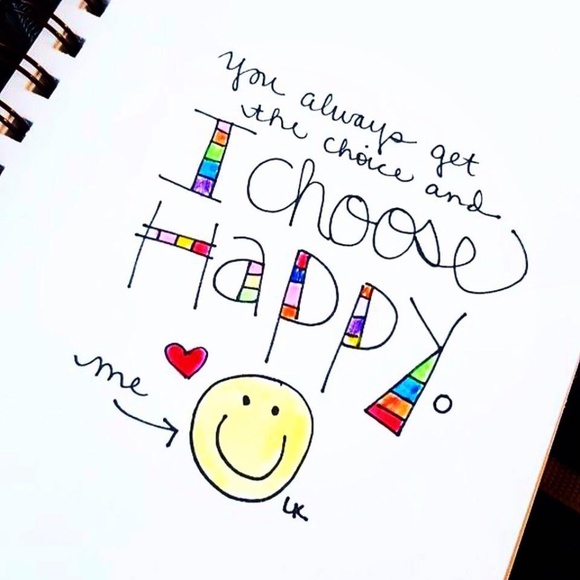 you always get
the choice and
I choose
Happy.
me
LK